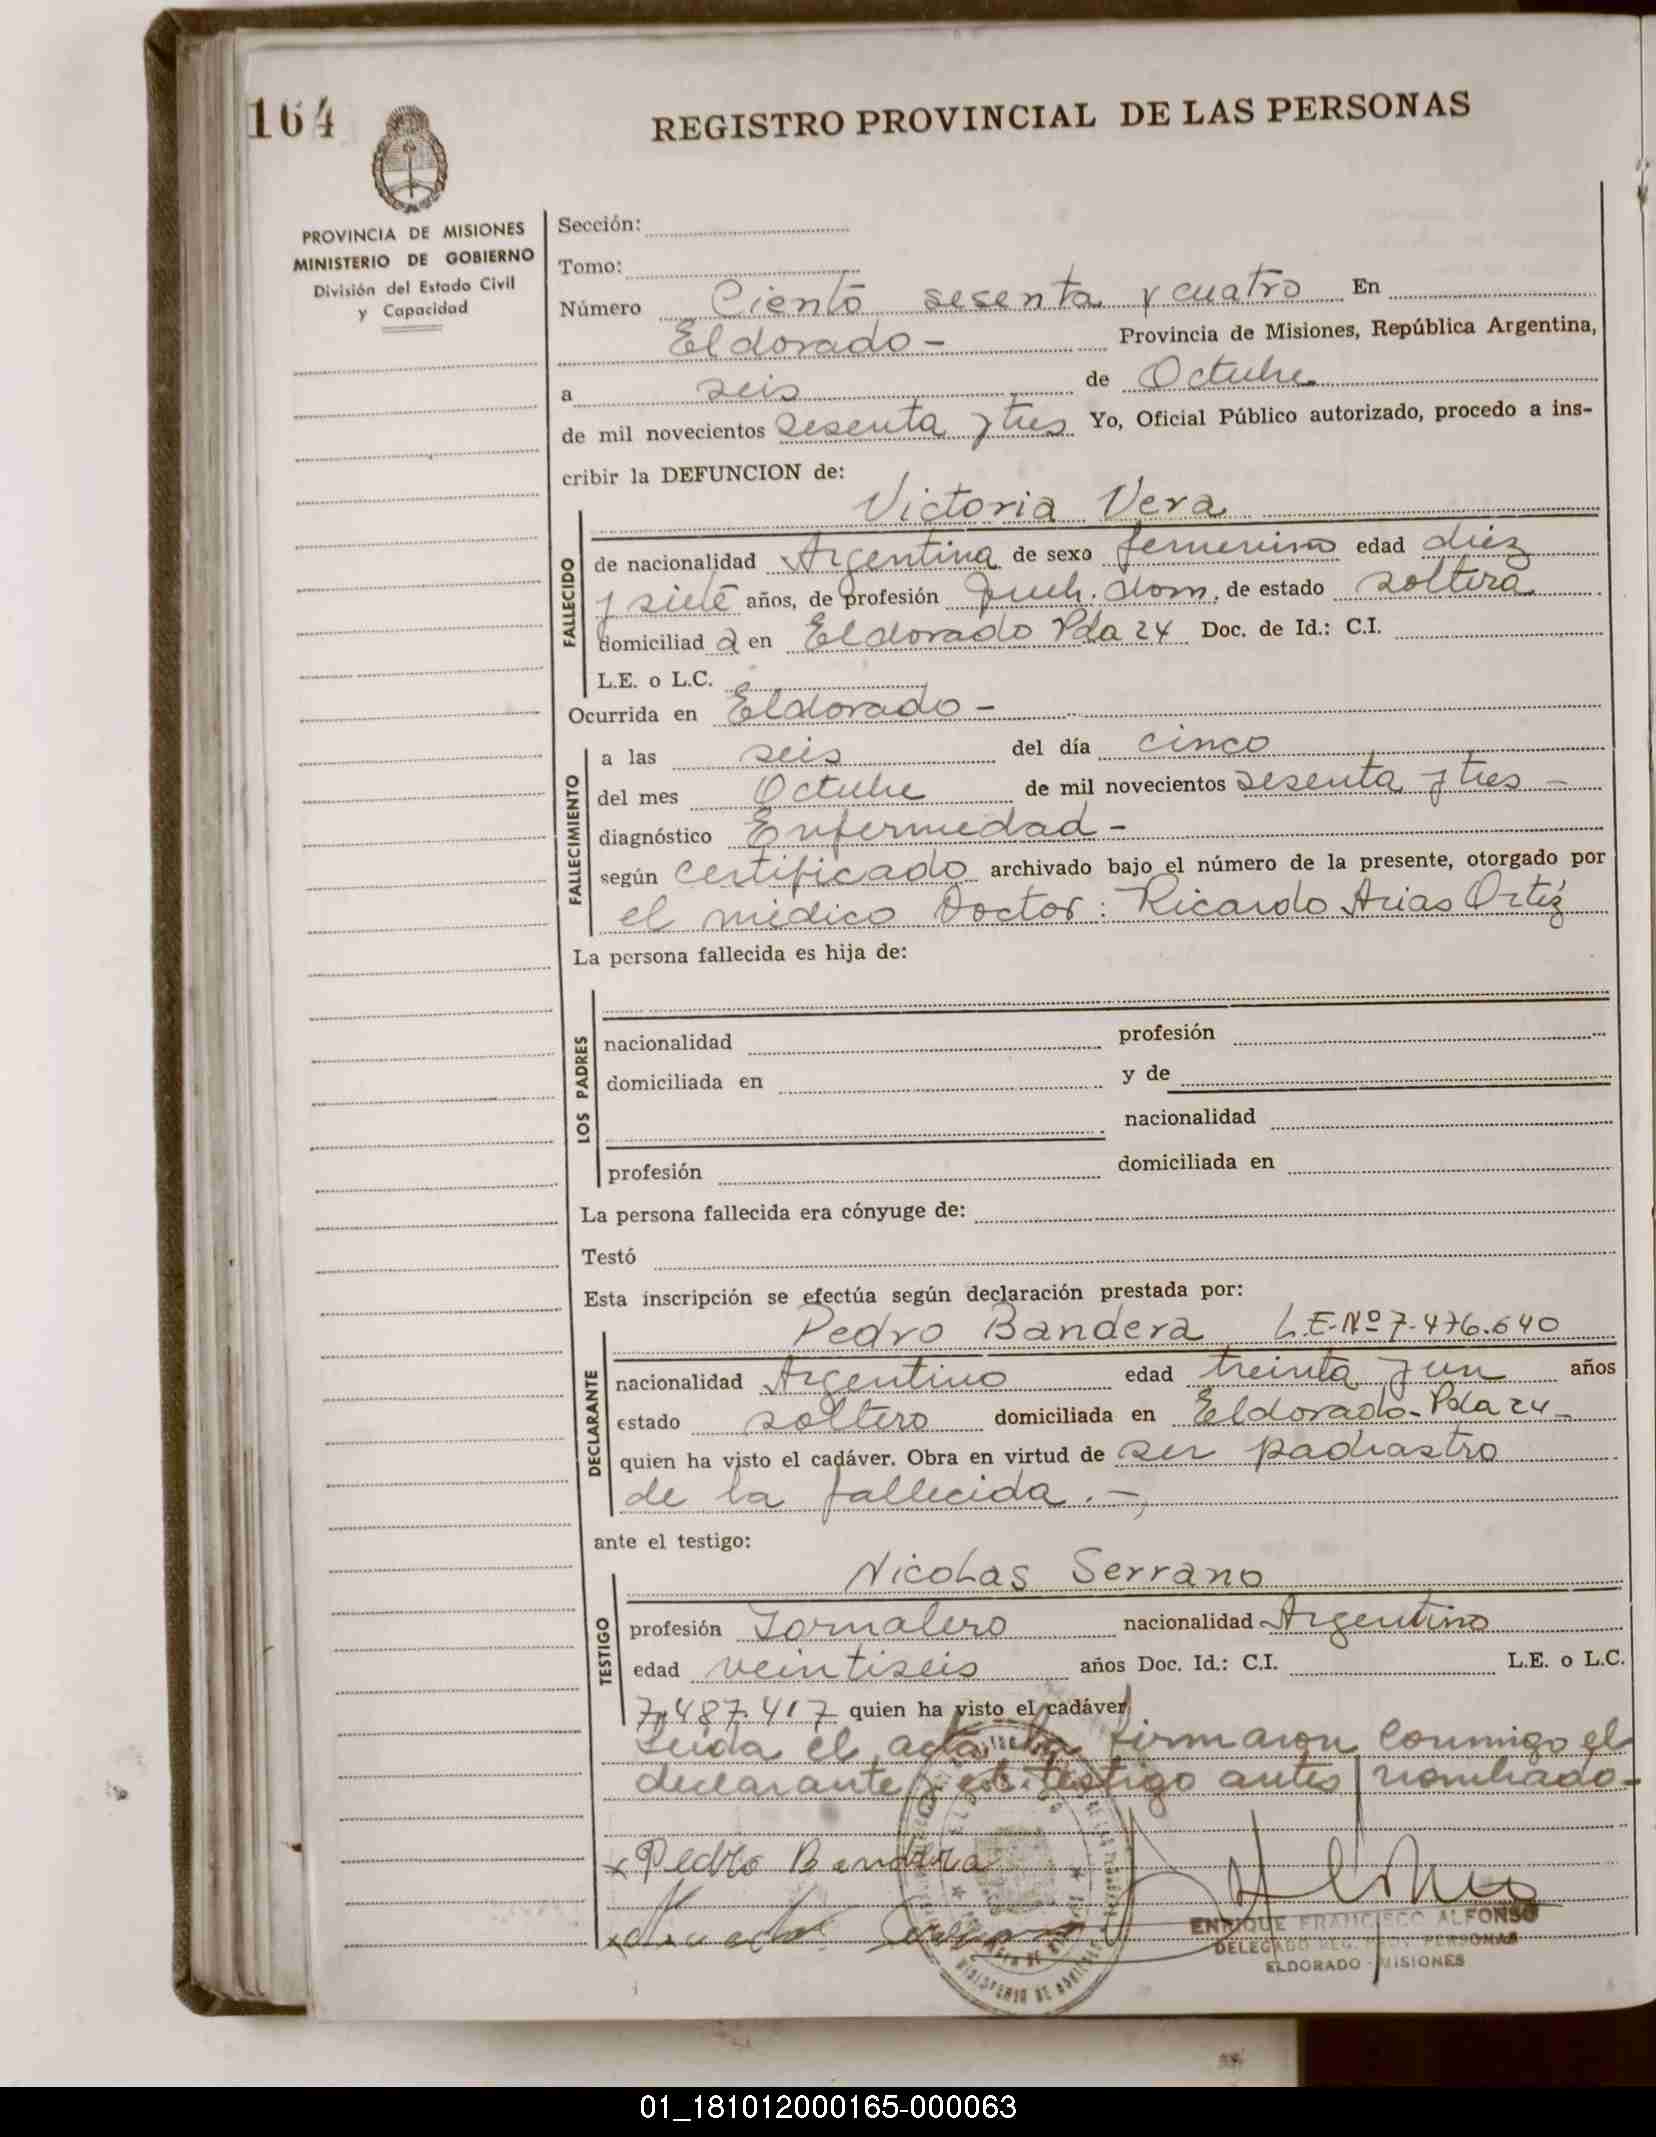 164
REGISTRO PROVINCIAL DE LAS PERSONAS
PROVINCIA DE MISIONES
MINISTERIO DE GOBIERNO
División del Estado Civil
y Capacidad
Sección:
Tomo:
Número Ciento sesenta y cuatro En
Eldorado - Provincia de Misiones, República Argentina,
a seis de Octubre
de mil novecientos sesenta y tres Yo, Oficial Público autorizado, procedo a ins-
cribir la DEFUNCION de:
Victoria Vera
FALLECIDO
de nacionalidad Argentina de sexo femenino edad diez
y siete años, de profesión Queh. dom. de estado soltera
domiciliad a en Eldorado Pda 24 Doc. de Id.: C.I.
L.E. o L.C.
Ocurrida en Eldorado -
FALLECIMIENTO
a las seis del día cinco
del mes Octubre de mil novecientos sesenta y tres -
diagnóstico Enfermedad -
según certificado archivado bajo el número de la presente, otorgado por
el médico Doctor: Ricardo Arias Ortíz
La persona fallecida es hija de:
LOS PADRES
nacionalidad profesión
domiciliada en y de
nacionalidad
profesión domiciliada en
La persona fallecida era cónyuge de:
Testó
Esta inscripción se efectúa según declaración prestada por:
Pedro Bandera L.E-Nº 7.476.640
DECLARANTE
nacionalidad Argentino edad treinta y un años
estado soltero domiciliada en Eldorado-Pda 24-
quien ha visto el cadáver. Obra en virtud de ser padrastro
de la fallecida.-
ante el testigo:
Nicolas Serrano
TESTIGO
profesión Jornalero nacionalidad Argentino
edad veintiseis años Doc. Id.: C.I. L.E. o L.C.
7.487.417 quien ha visto el cadáver
Leida el acta la firmaron conmigo el
declarante y el testigo antes nombrado-
x Pedro Bandera
ENRIQUE FRANCISCO ALFONSO
DELEGADO REG. PERSONAS
ELDORADO - MISIONES
01_181012000165-000063